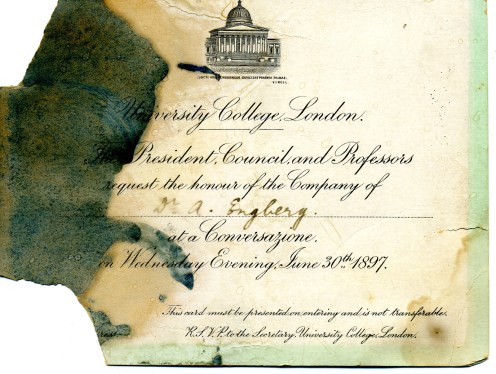 University College, London.
The President, Council, and Professors
request the honour of the Company of
Dr A. Engberg.
at a Conversazione,
on Wednesday Evening, June 30th 1897.
This card must be presented on entering and is not transferable.
R.S.V.P. to the Secretary, University College, London.